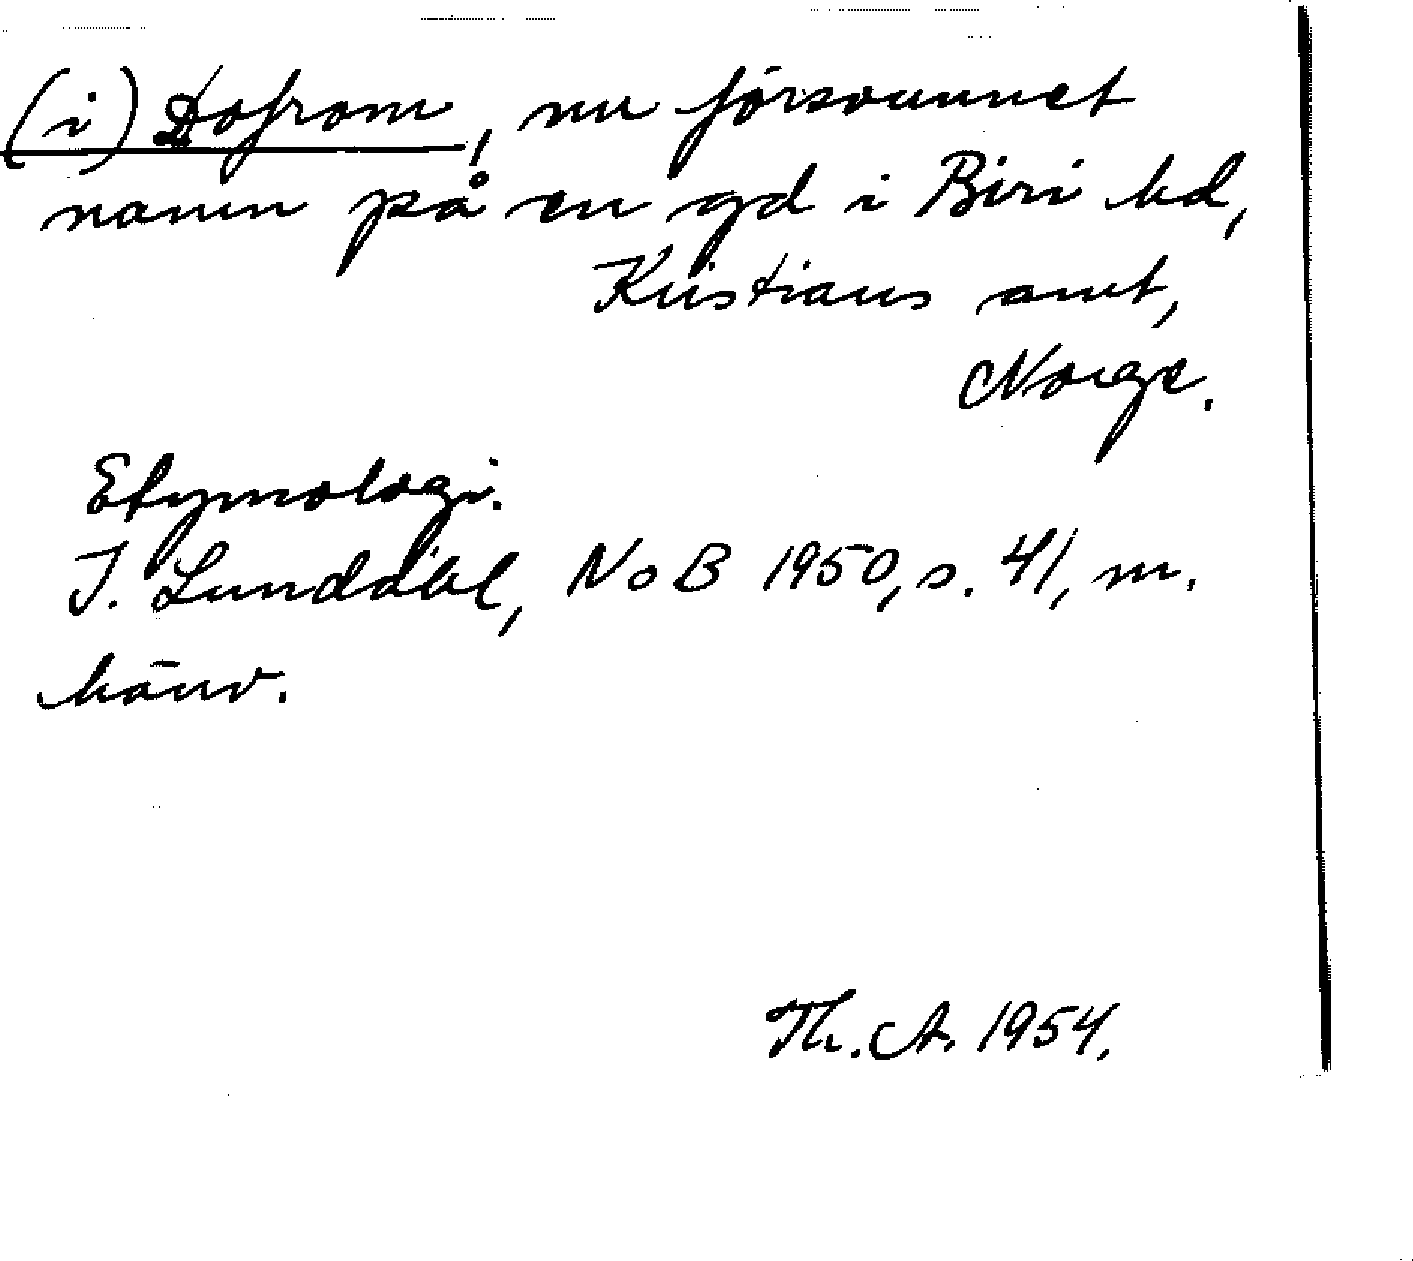 (i) Dofrom, nu försvunnet
namn på en gd i Biri hd,
Kristians amt,
Norge.
Etymologi.
I. Lundahl, NoB 1950, s. 41, m.
hänv.
Th. A. 1954.